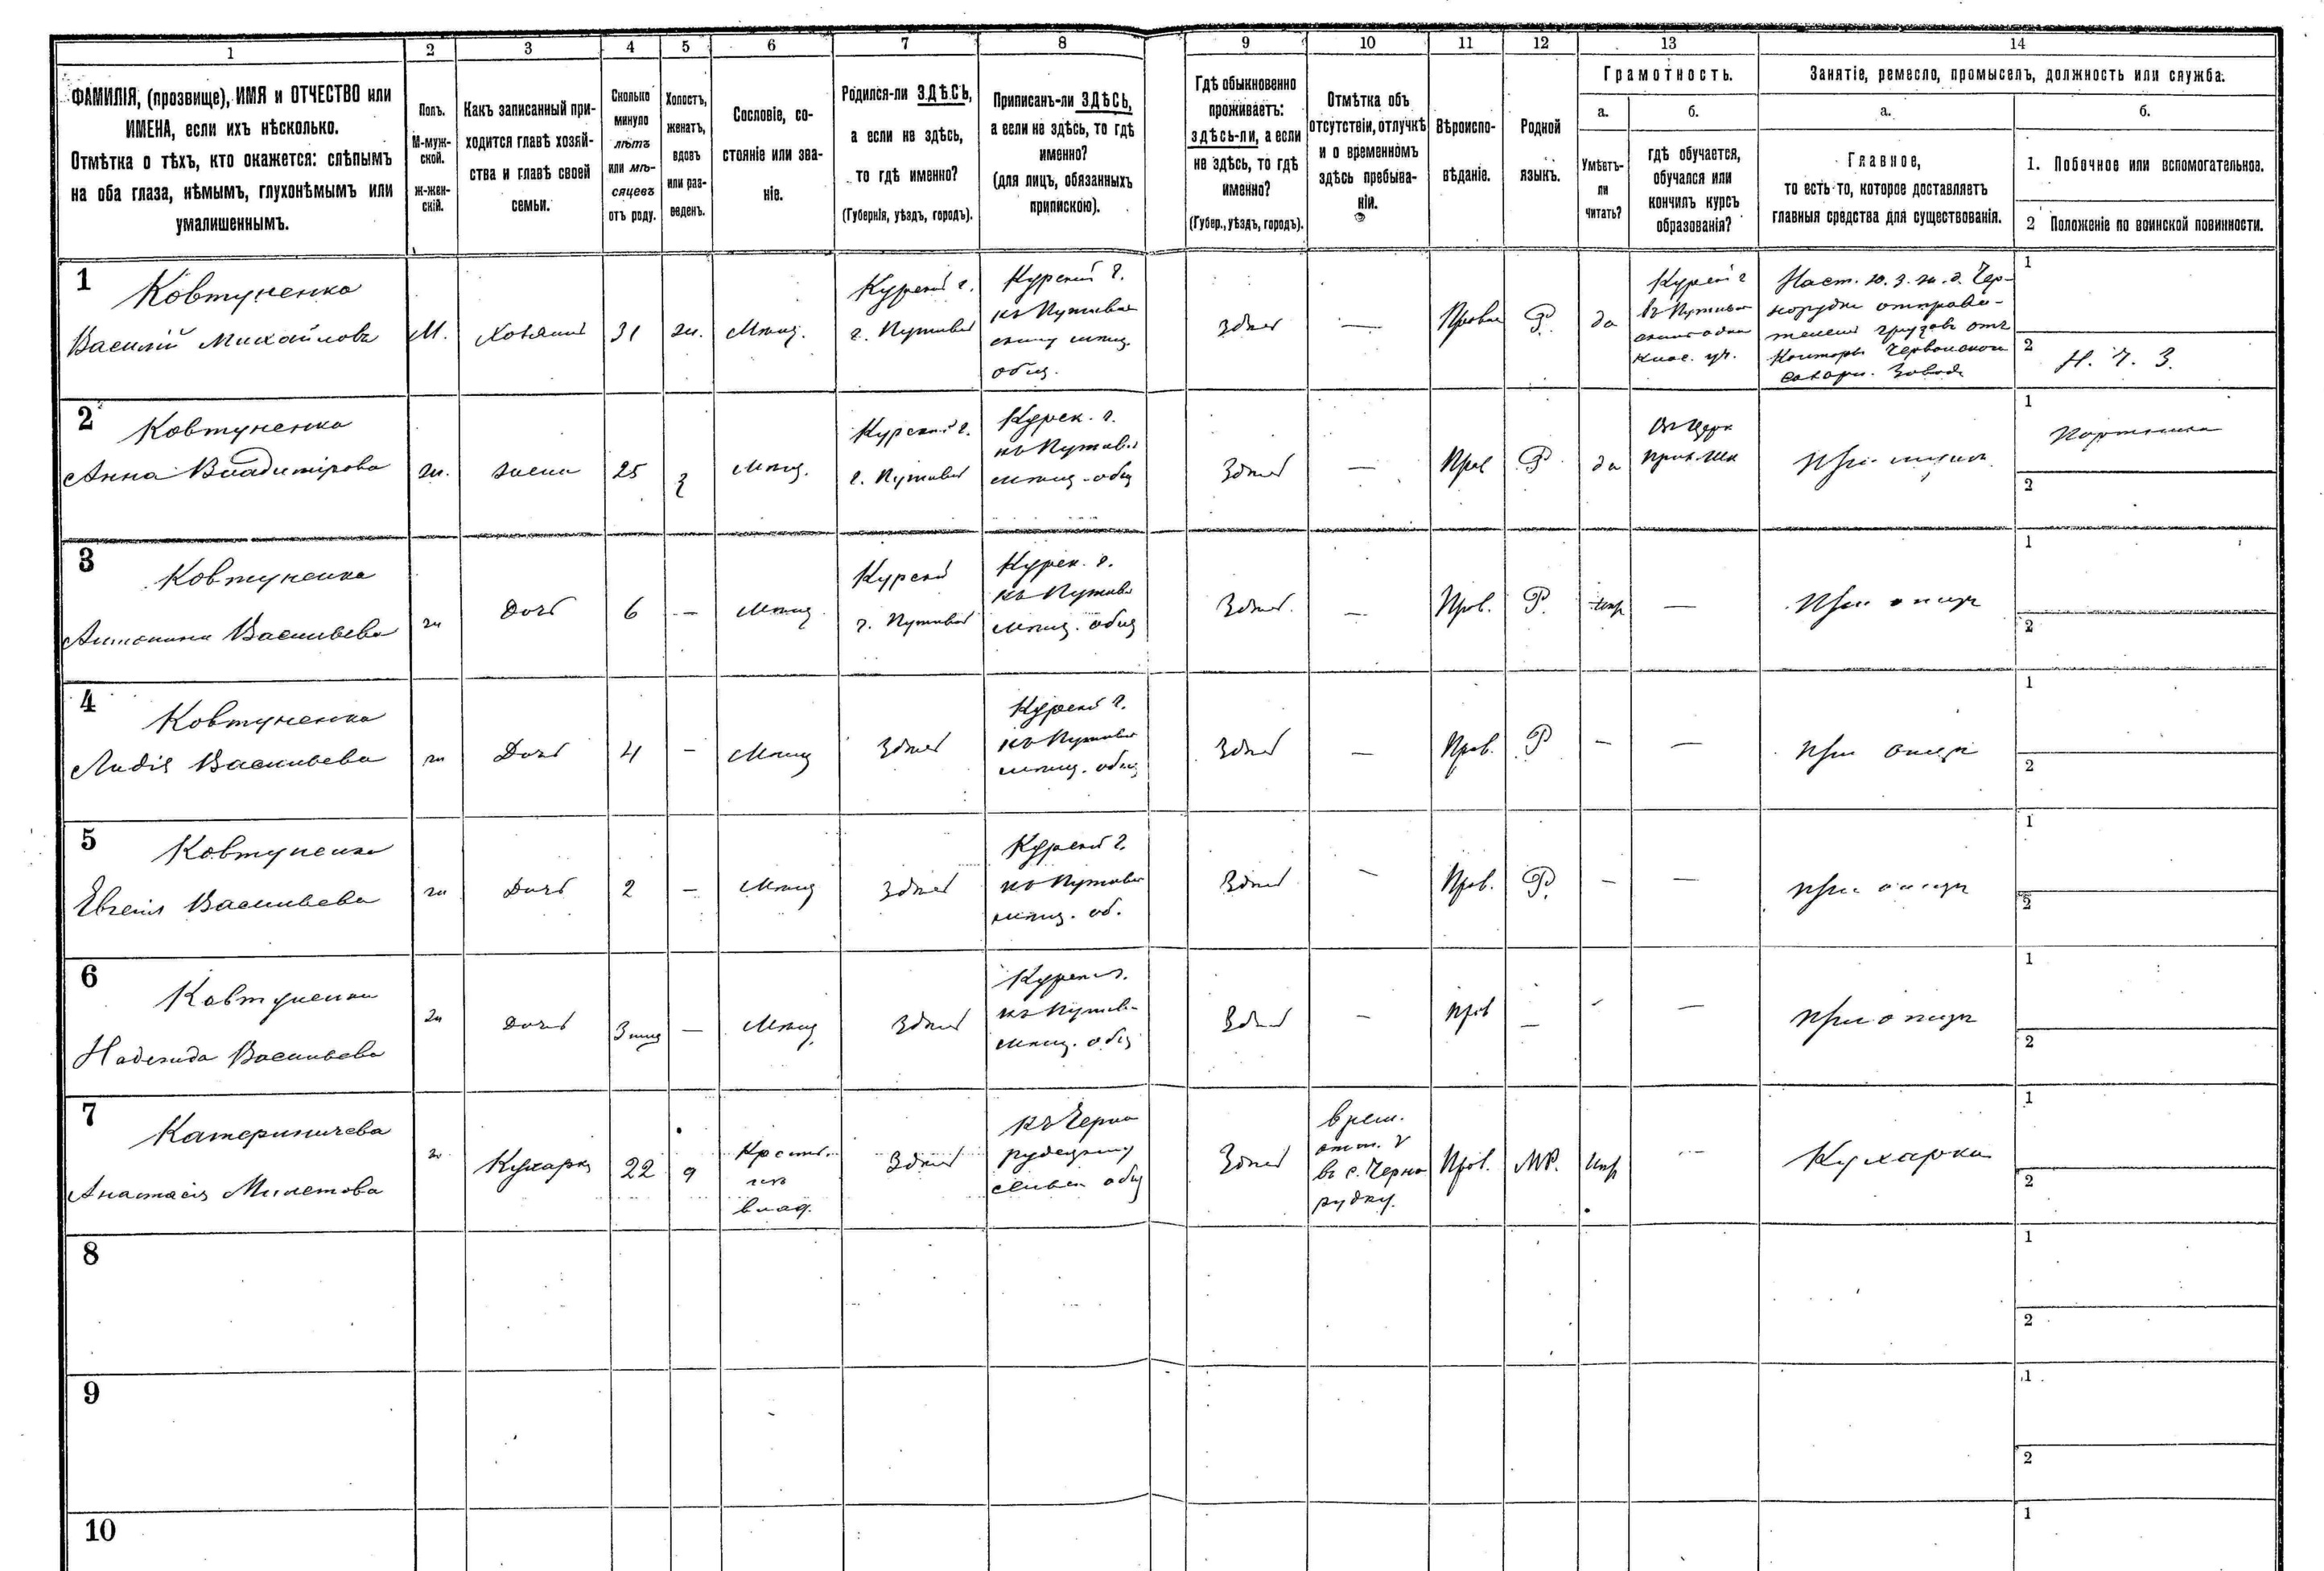 1 2 3 4 5 6 7 8 9 10 11 12 13 14
ФАМИЛІЯ, (прозвище), ИМЯ и ОТЧЕСТВО или
ИМЕНА, если ихъ нѣсколько.
Отмѣтка о тѣхъ, кто окажется: слѣпымъ
на оба глаза, нѣмымъ, глухонѣмымъ или
умалишеннымъ.
Полъ.
М-муж-
ской.
ж-жен-
скій.
Какъ записанный при-
ходится главѣ хозяй-
ства и главѣ своей
семьи.
Сколько
минуло
лѣтъ
или мѣ-
сяцевъ
отъ роду.
Холостъ,
женатъ,
вдовъ
или раз-
веденъ.
Сословіе, со-
стояніе или зва-
ніе.
Родился-ли ЗДѢСЬ,
а если не здѣсь,
то гдѣ именно?
(Губернія, уѣздъ, городъ).
Приписанъ-ли ЗДѢСЬ,
а если не здѣсь, то гдѣ
именно?
(для лицъ, обязанныхъ
припискою).
Гдѣ обыкновенно
проживаетъ:
здѣсь-ли, а если
не здѣсь, то гдѣ
именно?
(Губер., уѣздъ, городъ).
Отмѣтка объ
отсутствіи, отлучкѣ
и о временномъ
здѣсь пребыва-
ніи.
Вѣроиспо-
вѣданіе.
Родной
языкъ.
Грамотность.
а.
Умѣетъ-
ли
читать?
б.
гдѣ обучается,
обучался или
кончилъ курсъ
образованія?
Занятіе, ремесло, промыселъ, должность или служба.
а.
Главное,
то есть то, которое доставляетъ
главныя средства для существованія.
б.
1. Побочное или вспомогательное.
2 Положеніе по воинской повинности.
1
Ковтуненко
Василій Михайловъ
М.
Хозяинъ
31
ж.
Мѣщ.
Курской г.
г. Путивль
Курской г.
къ Путивль
скому мѣщ.
общ.
Здѣсь
—
Правос
Р.
да
Курской г
въ Путивль
класс. уч.
Наст. ю. з. ж. д. Чер-
норудка отправи-
телем грузовъ отъ
Конторы Червонскаго
сахарн. Завода
1
2
Н. Ч. З.
2
Ковтуненко
Анна Владимірова
ж.
жена
25
з
Мѣщ.
Курской г.
г. Путивль
Курск. г.
къ Путивл
мѣщ. общ
Здѣсь
—
Прав
Р.
да
Въ Церк
прих. шк
При мужѣ
1
Портниха
2
3
Ковтуненко
Антонина Васильева
ж
Дочь
6
—
Мѣщ.
Курской
г. Путивль
Курск. г.
къ Путивл
мѣщ. общ
Здѣсь.
—
Прав.
Р.
негр
—
При отцѣ
1
2
4
Ковтуненко
Лидія Васильева
ж
Дочь
4
—
Мѣщ
Здѣсь
Курской г.
къ Путивл
мѣщ. общ
Здѣсь
—
Прав.
Р
—
—
При отцѣ
1
2
5
Ковтуненко
Евгенія Васильева
ж
Дочь
2
—
Мѣщ
Здѣсь
Курской г.
къ Путивл
мѣщ. об.
Здѣсь
—
Прав.
Р.
—
—
При отцѣ
1
2
6
Ковтуненко
Надежда Васильева
ж
Дочь
3 мѣц
—
Мѣщ.
Здѣсь
Курской г.
къ Путивл
мѣщ. общ
Здѣсь
—
Прав
—
—
—
При отцѣ
1
2
7
Катериничева
Анастасія Милетова
ж
Кухарка
22
Крестьян.
изъ
влад.
Здѣсь
къ Черно
рудецкому
сельск общ
Здѣсь
врем.
въ с. Черно
рудку.
Прав.
МР.
негр
—
Кухарка
1
2
8
1
2
9
1
2
10
1